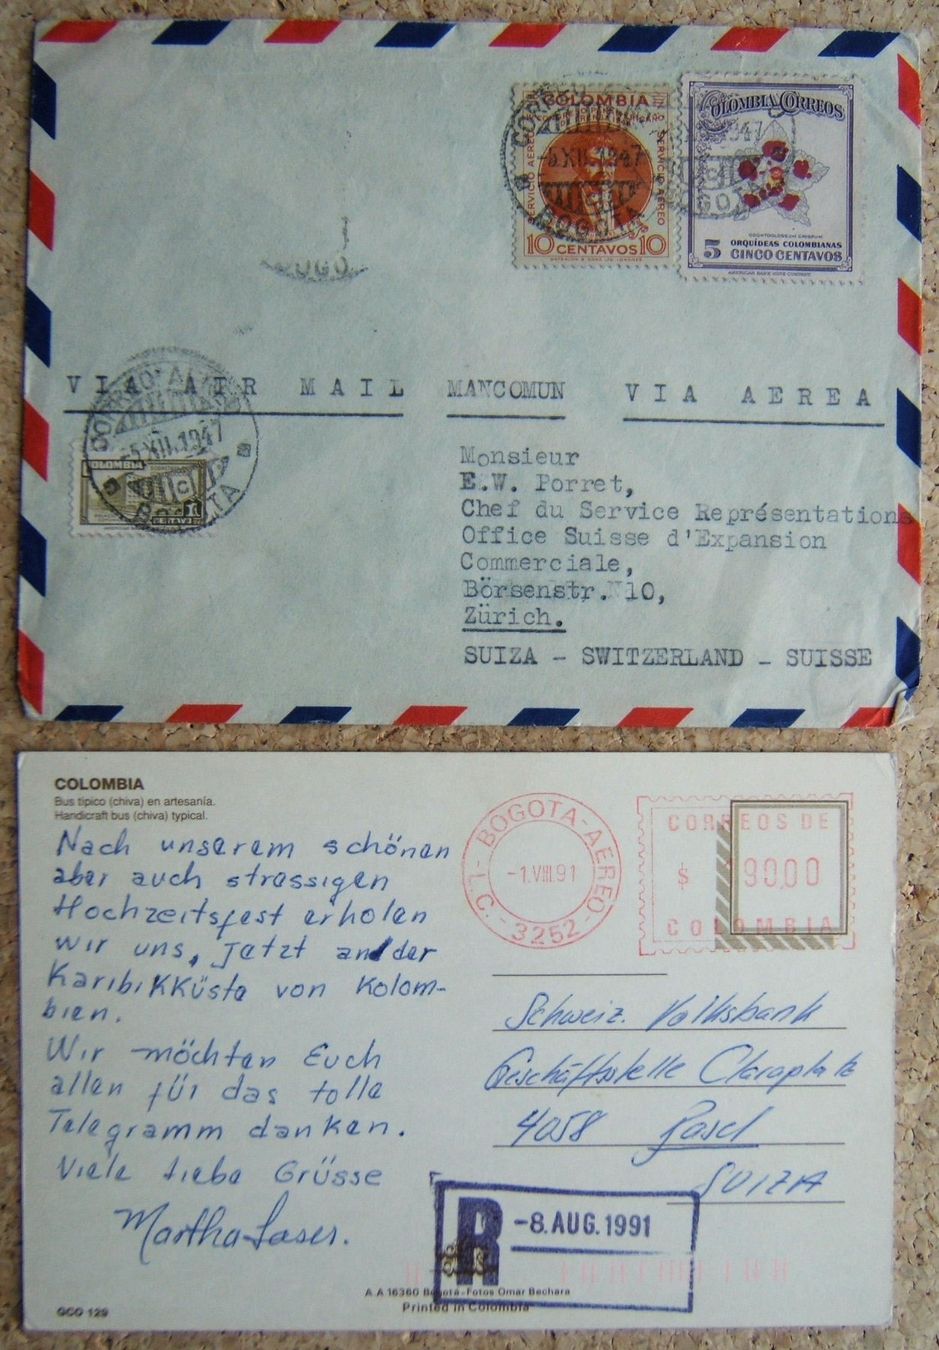 COLOMBIA
SERVICIO AEREO
10 CENTAVOS 10
COLOMBIA CORREOS
ODONTOGLOSSUM CRISPUM
ORQUÍDEAS COLOMBIANAS
5 CINCO CENTAVOS
AMERICAN BANK NOTE COMPANY
-5 XII.1947
BOGOTA
VIA AIR MAIL MANCOMUN VIA AEREA
-5 XII.1947
BOGOTA
COLOMBIA
1
CENTAVO
Monsieur
E.W. Porret,
Chef du Service Représentations
Office Suisse d'Expansion
Commerciale,
Börsenstr. 10,
Zürich.
SUIZA - SWITZERLAND - SUISSE
COLOMBIA
Bus típico (chiva) en artesanía.
Handicraft bus (chiva) typical.
Nach unserem schönen
aber auch strassigen
Hochzeitsfest erholen
wir uns, jetzt an der
Karibikküste von Kolom-
bien.
Wir möchten Euch
allen für das tolle
Telegramm danken.
Viele liebe Grüsse
Martha
I.C. - BOGOTA-AEREO - 3252
-1.VIII.91
CORREOS DE
$ 90,00
COLOMBIA
Schweiz. Volksbank
Geschäftsstelle Claraplatz
4058 Basel
SUIZA
R -8. AUG. 1991
A.A 16360 Bogotá - Fotos Omar Bechara
Printed in Colombia
GCO 129